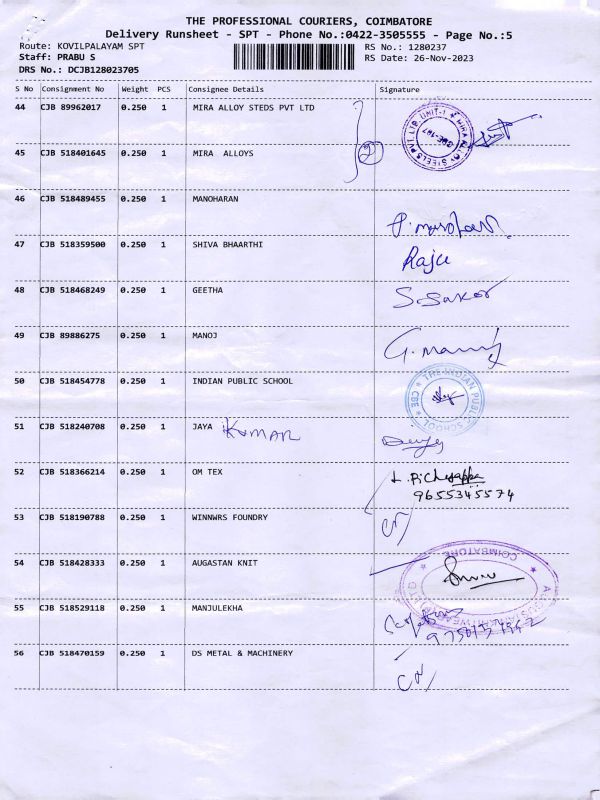 THE PROFESSIONAL COURIERS, COIMBATORE
Delivery Runsheet - SPT - Phone No.:0422-3505555 - Page No.:5
Route: KOVILPALAYAM SPT RS No.: 1280237
Staff: PRABU S RS Date: 26-Nov-2023
DRS No.: DCJB128023705
S No Consignment No Weight PCS Consignee Details Signature
44 CJB 89962017 0.250 1 MIRA ALLOY STEDS PVT LTD
2
45 CJB 518401645 0.250 1 MIRA ALLOYS
46 CJB 518489455 0.250 1 MANOHARAN
47 CJB 518359500 0.250 1 SHIVA BHAARTHI Raju
48 CJB 518468249 0.250 1 GEETHA
49 CJB 89886275 0.250 1 MANOJ
50 CJB 518454778 0.250 1 INDIAN PUBLIC SCHOOL THE INDIAN PUBLIC SCHOOL CBE
51 CJB 518240708 0.250 1 JAYA KUMAR
52 CJB 518366214 0.250 1 OM TEX
9655345574
53 CJB 518190788 0.250 1 WINNWRS FOUNDRY
54 CJB 518428333 0.250 1 AUGASTAN KNIT COIMBATORE
55 CJB 518529118 0.250 1 MANJULEKHA
56 CJB 518470159 0.250 1 DS METAL & MACHINERY